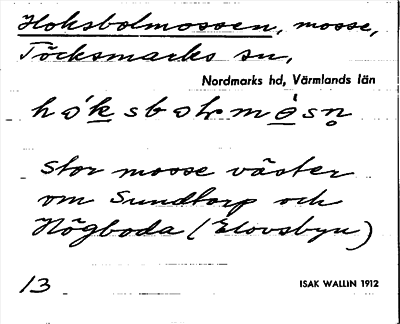 Hoksbolmossen, mosse,
Töcksmarks sn,
Nordmarks hd, Värmlands län
stor mosse väster
om Sundtorp och
Högboda (Elovsbyn)
13
ISAK WALLIN 1912